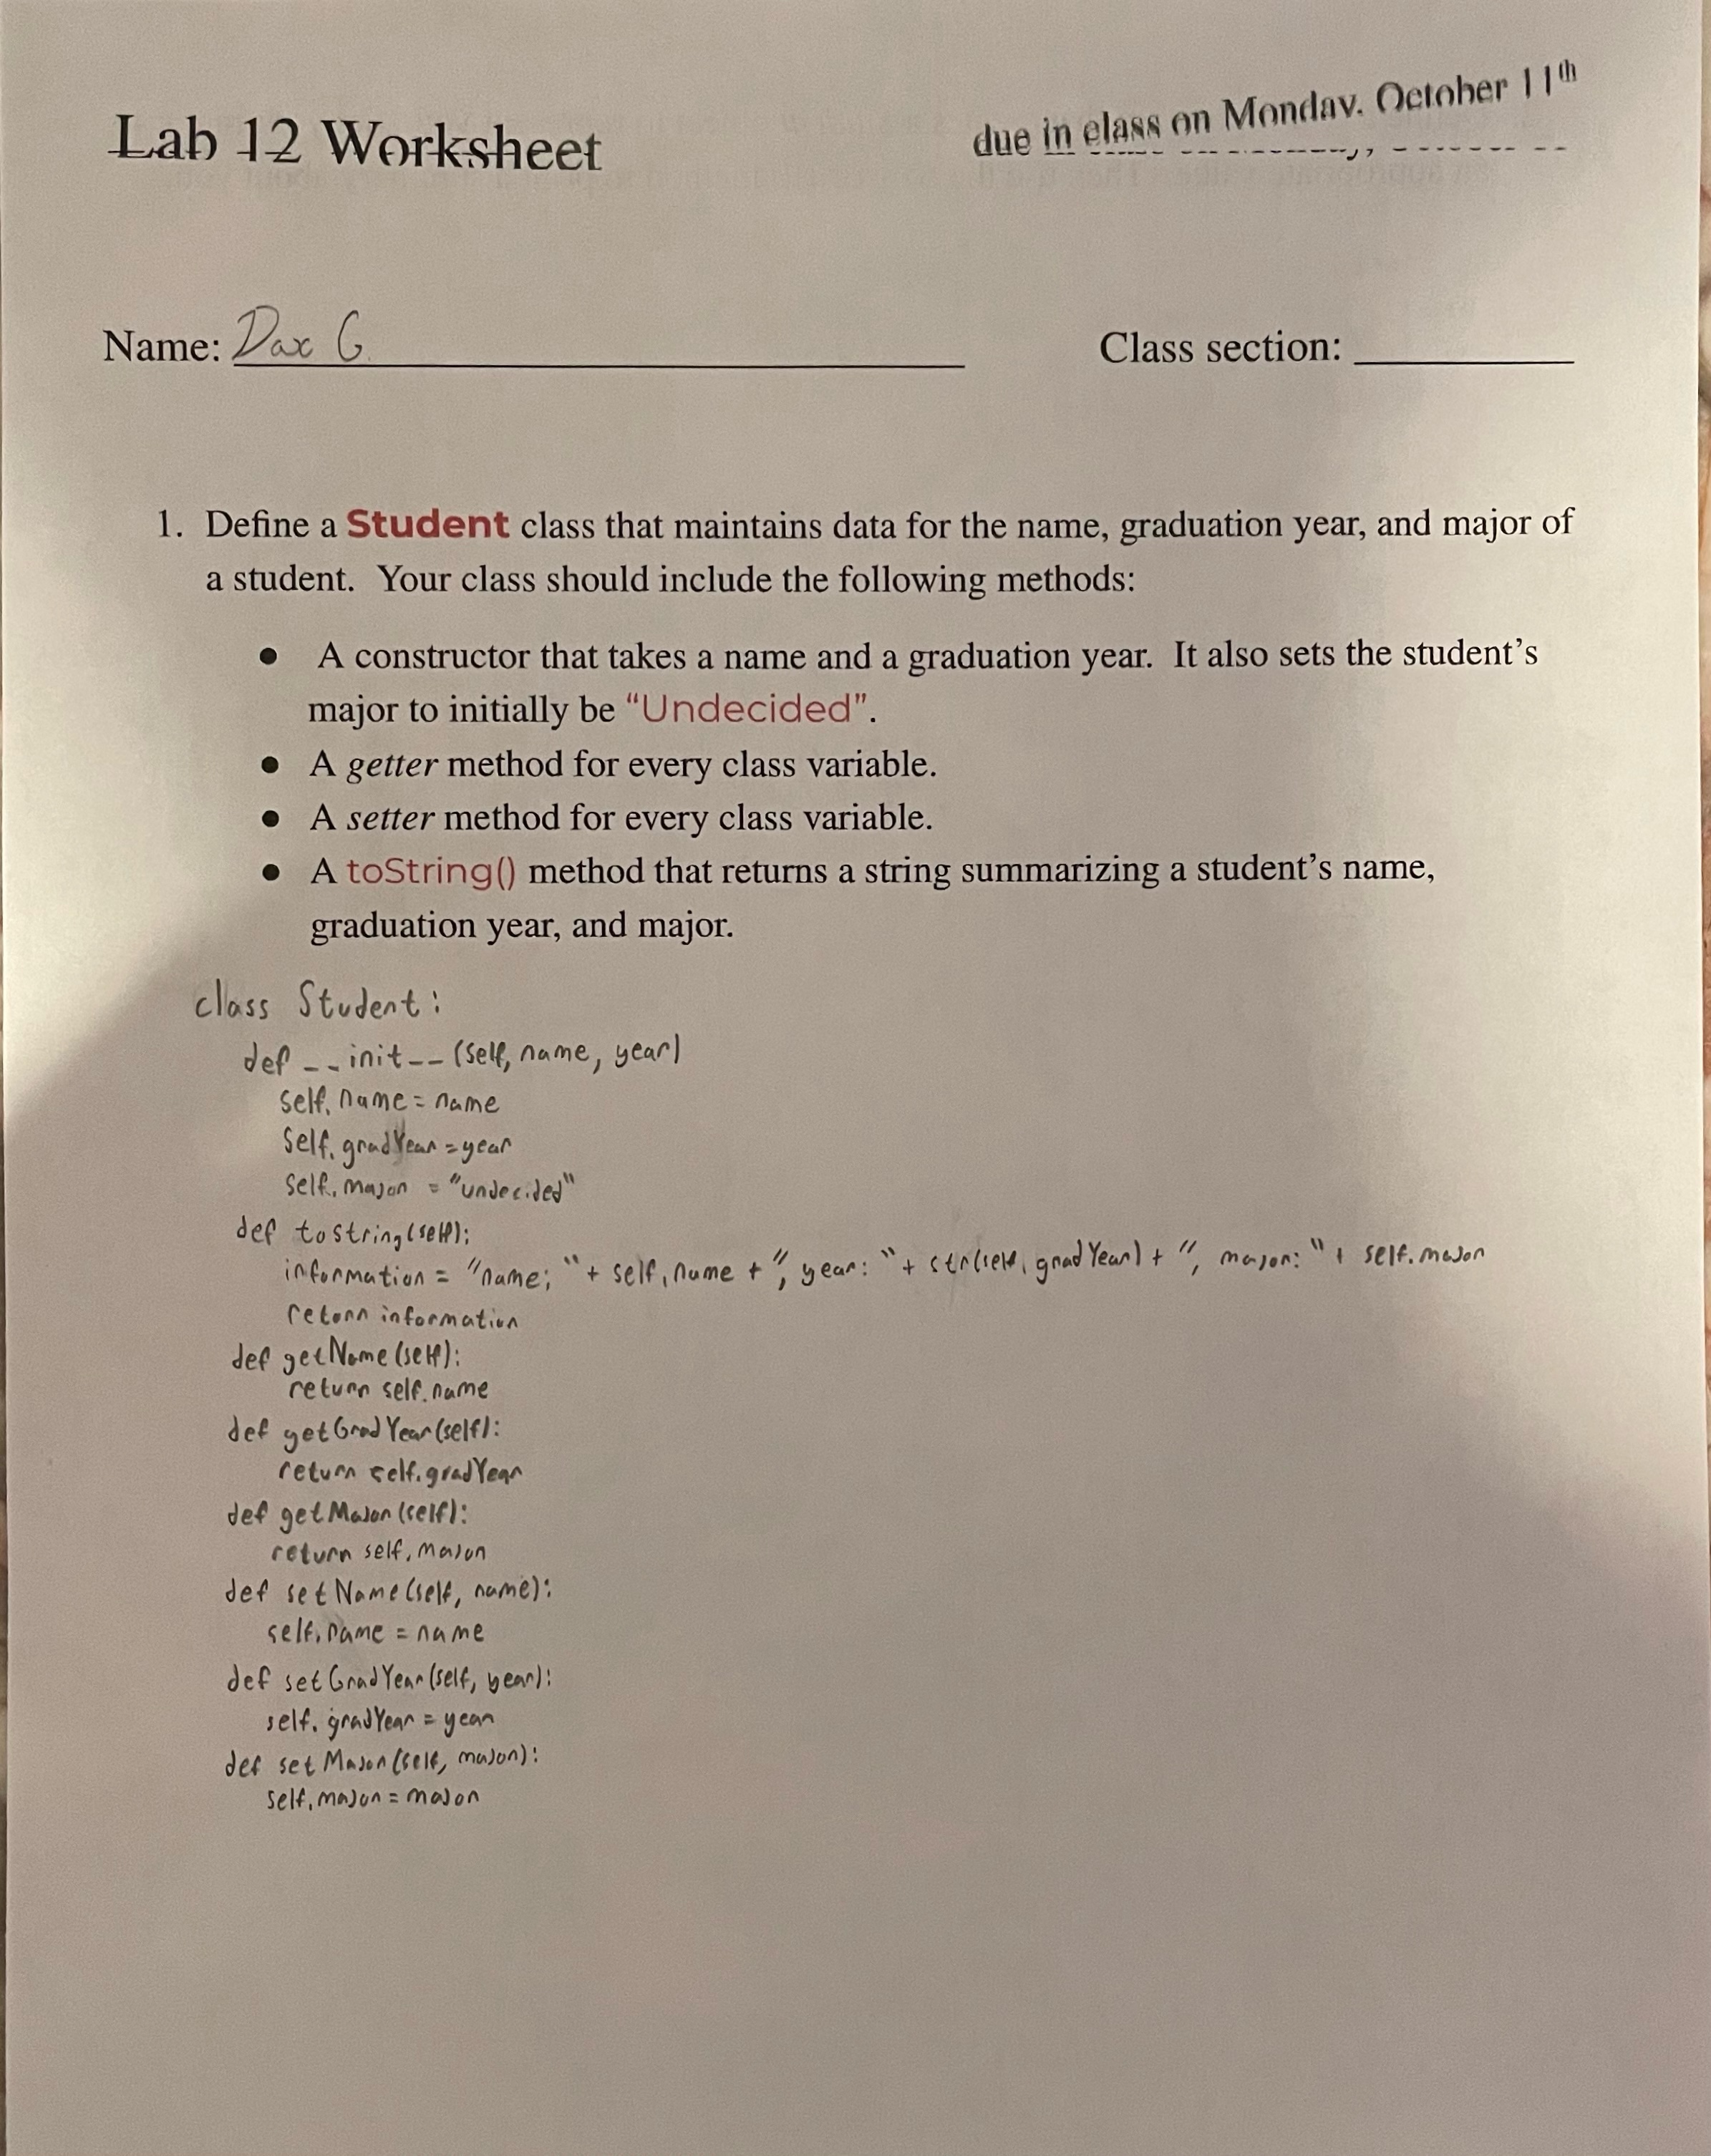 Lab 12 Worksheet
due in class on Monday, October 11th
Name: Dax G.
Class section:
1. Define a Student class that maintains data for the name, graduation year, and major of
a student. Your class should include the following methods:
• A constructor that takes a name and a graduation year. It also sets the student's
major to initially be “Undecided”.
• A getter method for every class variable.
• A setter method for every class variable.
• A toString() method that returns a string summarizing a student's name,
graduation year, and major.
class Student:
def __init__(self, name, year)
self.name = name
self.gradYear = year
self.major = "undecided"
def tostring(self):
information = "name: " + self.name + ", year: " + str(self.gradYear) + ", major: " + self.major
return information
def getName(self):
return self.name
def getGradYear(self):
return self.gradYear
def getMajor(self):
return self.major
def setName(self, name):
self.name = name
def setGradYear(self, year):
self.gradYear = year
def setMajor(self, major):
self.major = major